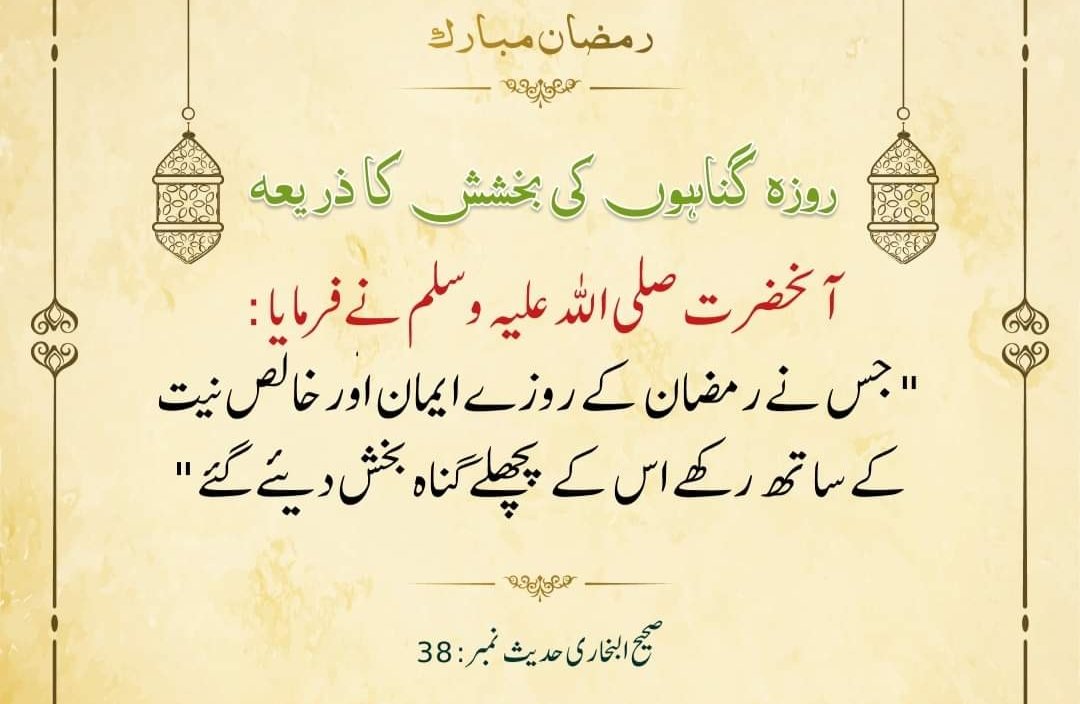 رمضان مبارک
روزہ گناہوں کی بخشش کا ذریعہ
آنحضرت صلی اللہ علیہ وسلم نے فرمایا:
"جس نے رمضان کے روزے ایمان اور خالص نیت
کے ساتھ رکھے اس کے پچھلے گناہ بخش دیئے گئے"
صحیح البخاری حدیث نمبر: 38